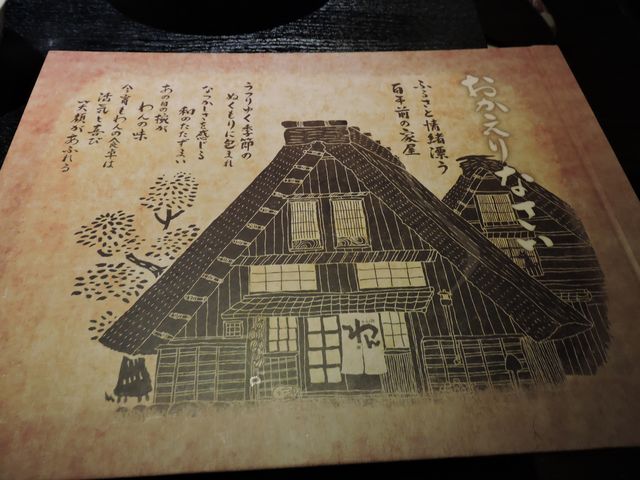 おかえりなさい
ふるさと情緒漂う
百年前の家屋
うつりゆく季節の
ぬくもりに包まれ
なつかしさを感じる
和のたたずまい
あの日の換が
わんの味
今宵もわんの食卓は
活気と喜び
笑顔があふれる
わん